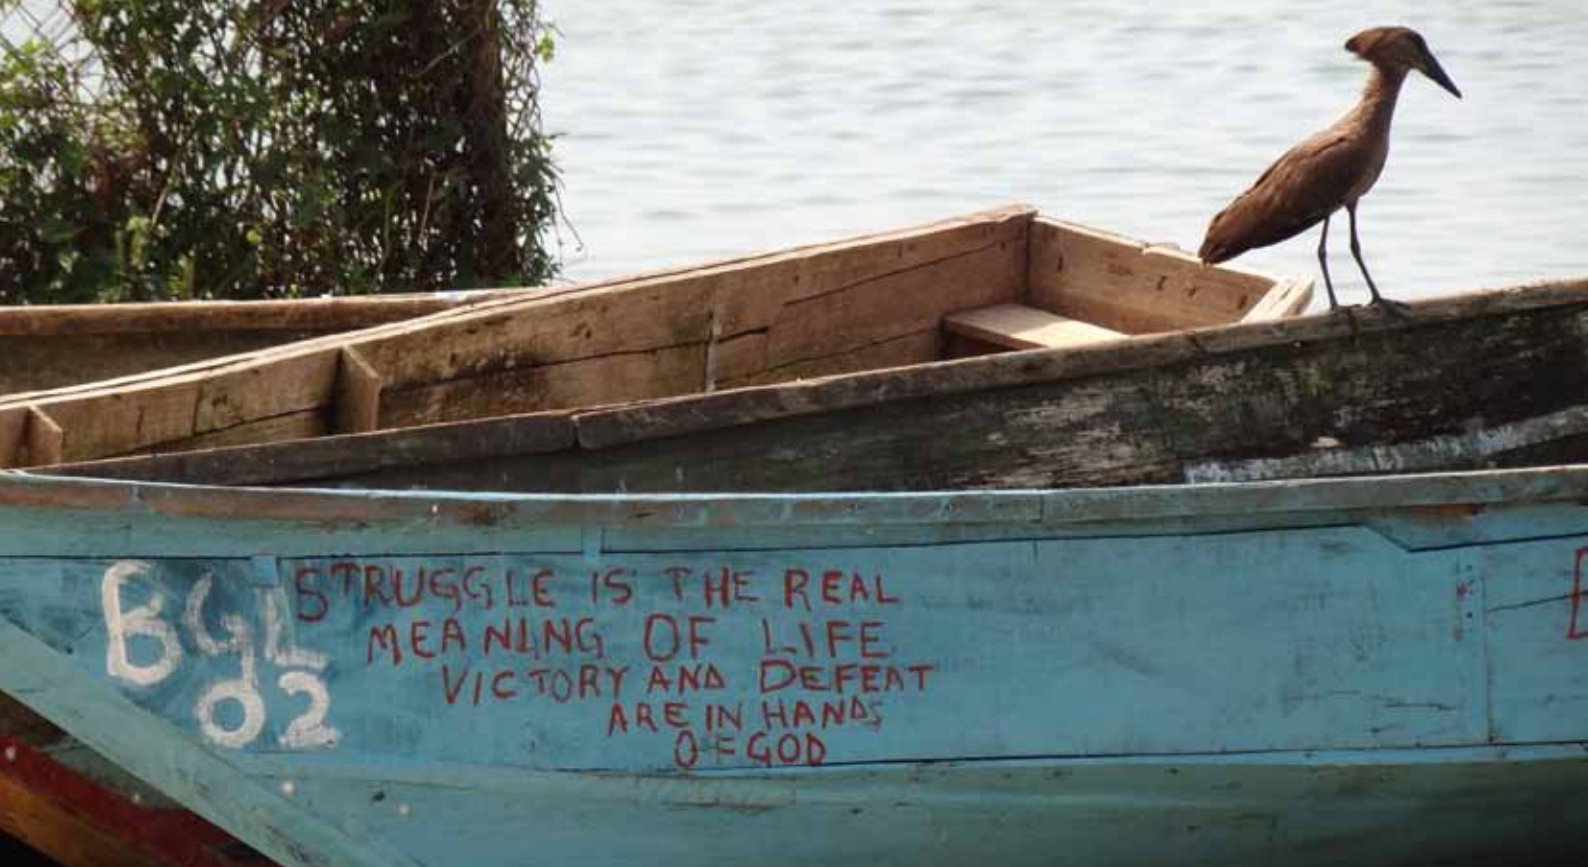 BGL
02
STRUGGLE IS THE REAL
MEANING OF LIFE
VICTORY AND DEFEAT
ARE IN HANDS
OF GOD